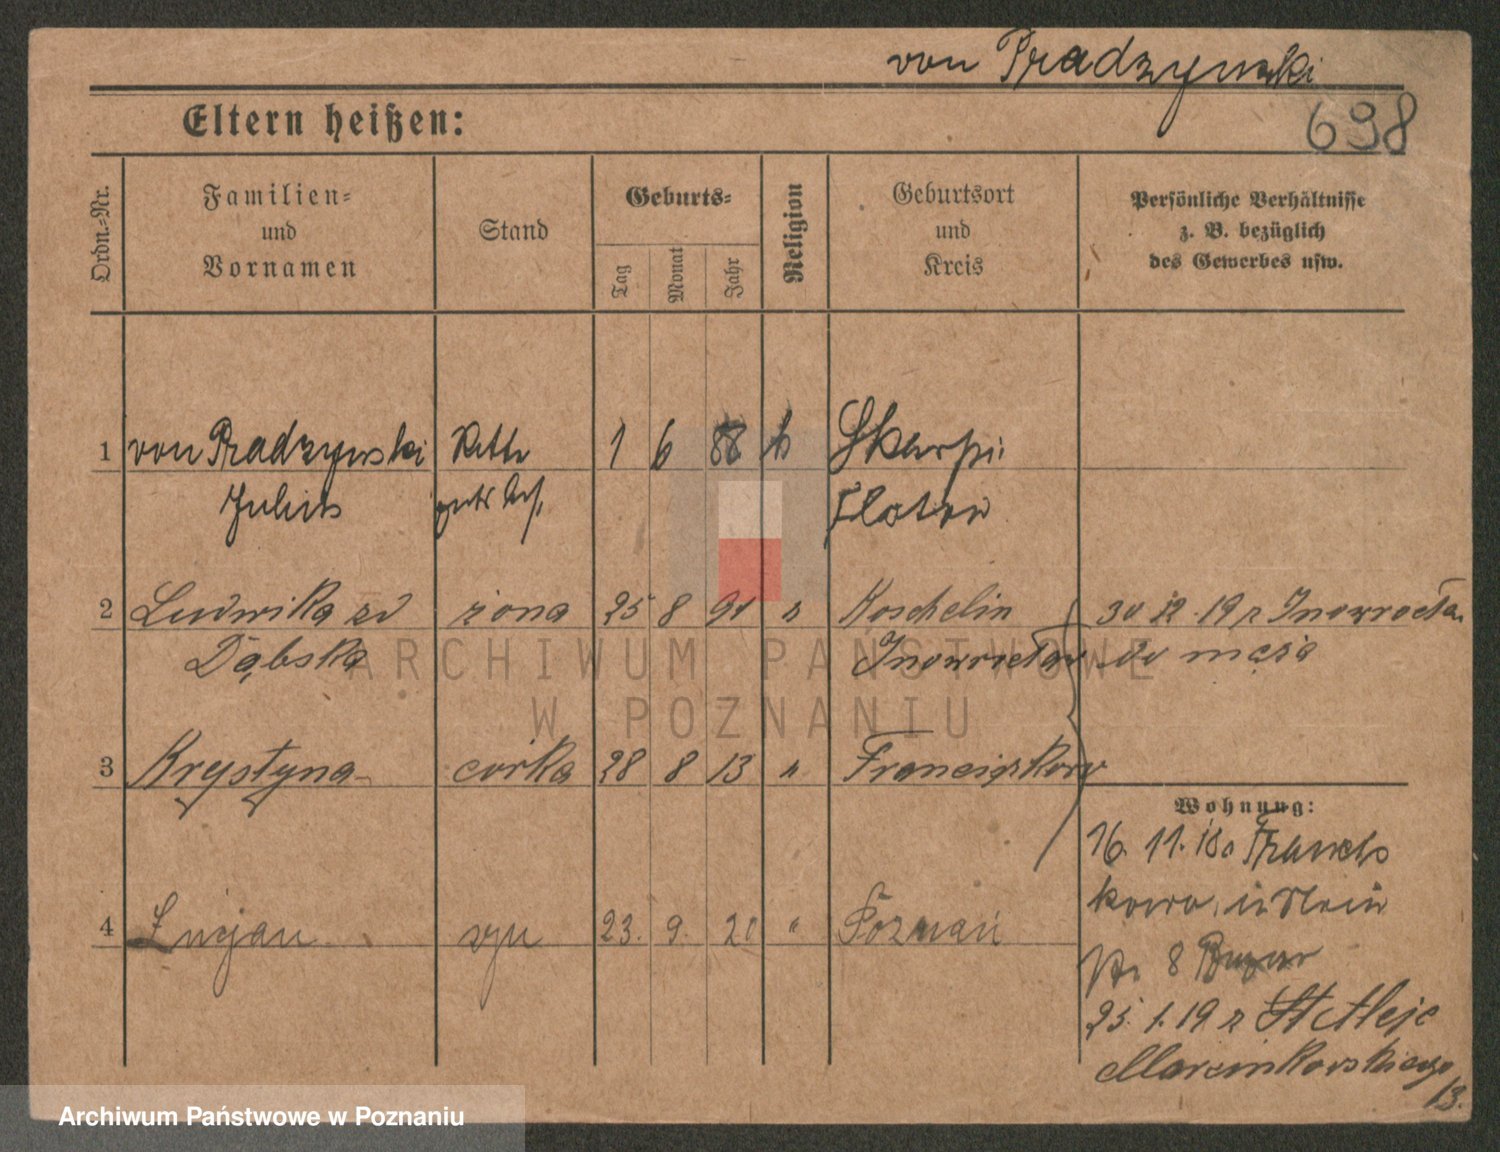 von Pradzynski
698
Eltern heißen:
Ordn.-Nr.
Familien-
und
Vornamen
Stand
Geburts-
Tag
Monat
Jahr
Religion
Geburtsort
und
Kreis
Persönliche Verhältnisse
z. B. bezüglich
des Gewerbes usw.
1 von Pradzynski Ritter 1 6 88 k Skarpi
Julius gutsbes. Flatow
2 Ludwika zd żona 25 8 91 " Koschelin 30 12 19 z Inowrocła
Dąbska Inowrocław do męża
3 Krystyna córka 28 8 13 " Franciszkowo
Wohnung:
16. 11. 18
4 Lucjan syn 23. 9. 20 " Poznań
8 Bazar
25. 1. 19 z Aleje
Marcinkowskiego
13.
ARCHIWUM PAŃSTWOWE
W POZNANIU
Archiwum Państwowe w Poznaniu